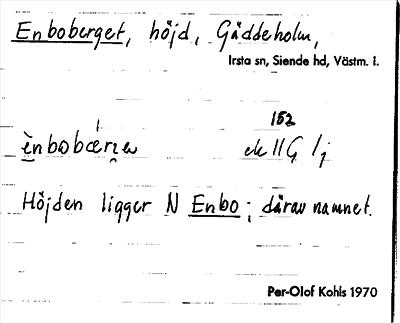 Enboberget, höjd, Gäddeholm,
Irsta sn, Siende hd, Västm. l.
152
ek 11G 1j
Höjden ligger N Enbo; därav namnet.
Per-Olof Kohls 1970